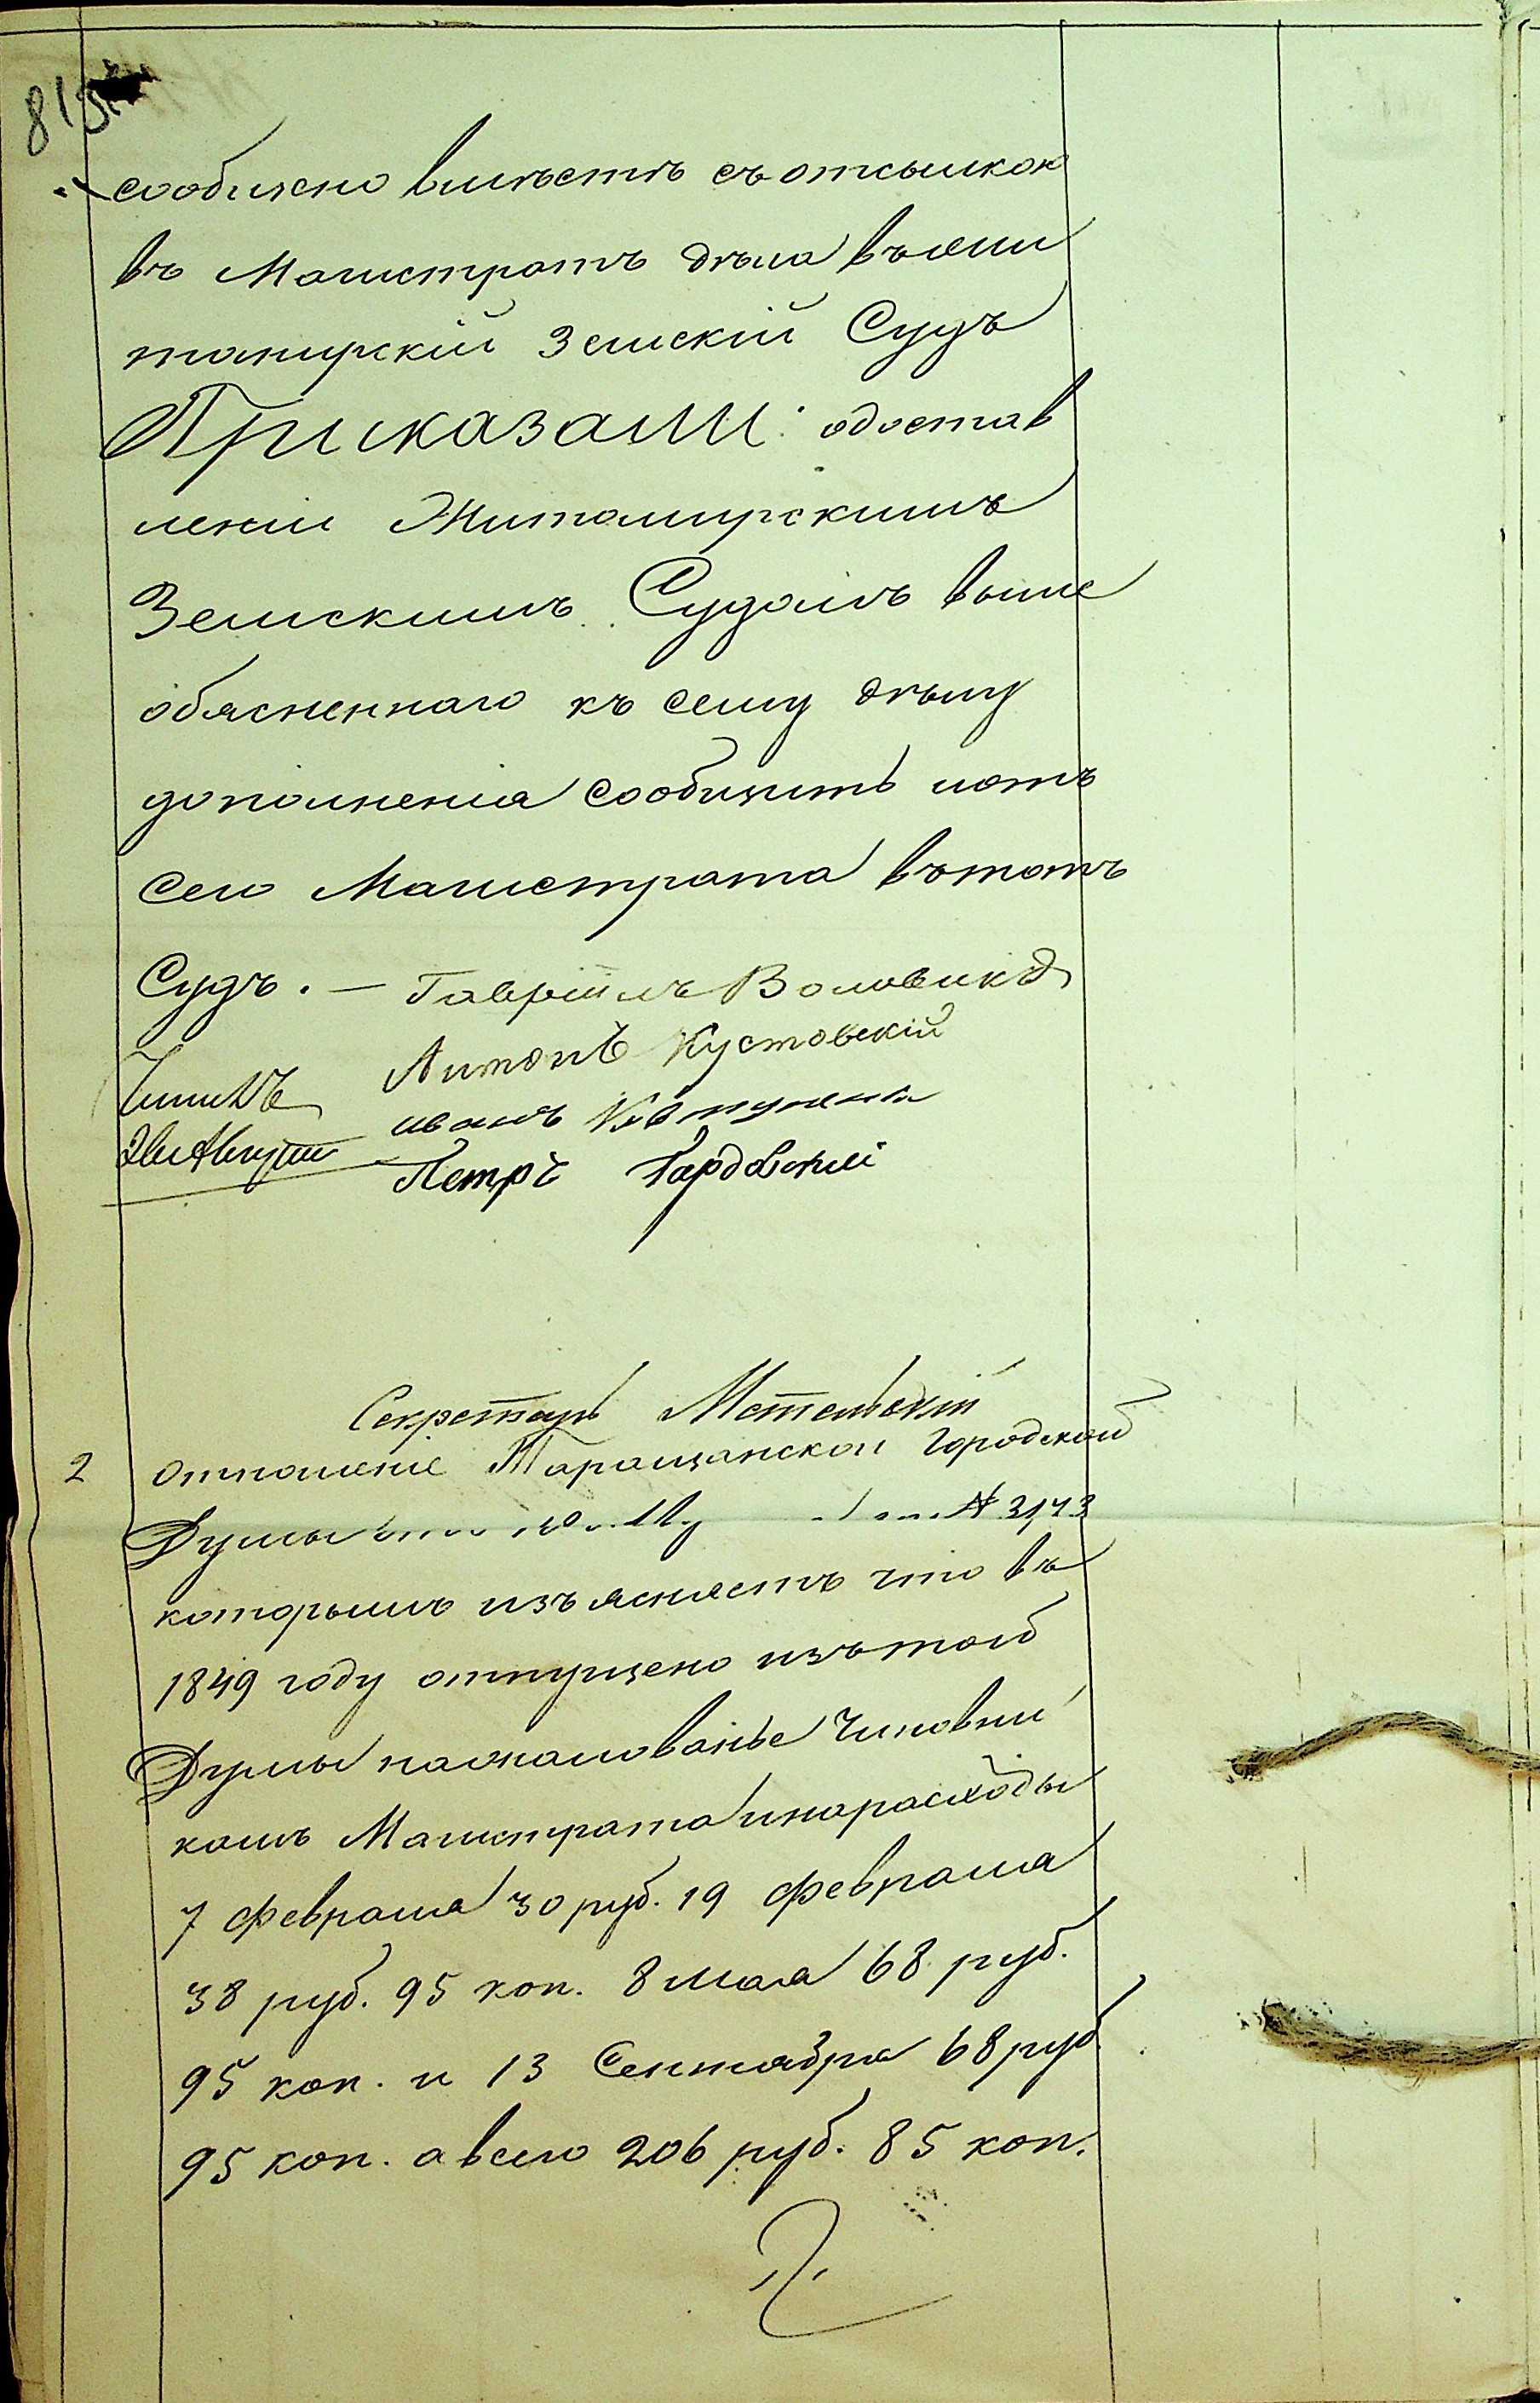 сообщено вмѣстѣ съ отсылкою
въ Магистратъ дѣла въ Жи
томирскій Земскій Судъ
Приказали: о достав
леніи Житомирскимъ
Земскимъ Судомъ выше
обясненнаго къ сему дѣлу
дополненія сообщить изъ
сего Магистрата въ тотъ
Судъ. — Гавріилъ Воловикъ
Антонъ Кустовскій
Иванъ
Петръ Гардовскій
Секретарь
2 Отношеніе Таращанской Городской
Думы № 3143
которымъ изъясняетъ что въ
1849 году отпущено изъ той
Думы на жалованье Чиновни
камъ Магистрата и на расходы
7 февраля 30 руб. 19 февраля
38 руб. 95 коп. 8 мая 68 руб.
95 коп. и 13 Сентября 68 руб.
95 коп. а всего 206 руб. 85 коп.